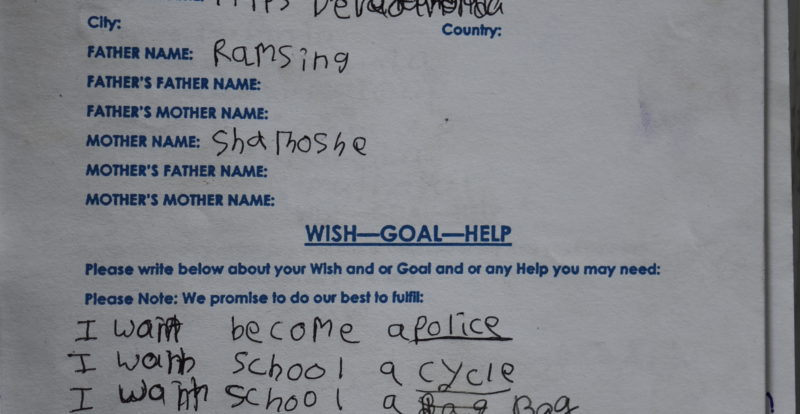 City: Country:
FATHER NAME: Ramsing
FATHER'S FATHER NAME:
FATHER'S MOTHER NAME:
MOTHER NAME:
MOTHER'S FATHER NAME:
MOTHER'S MOTHER NAME:
WISH—GOAL—HELP
Please write below about your Wish and or Goal and or any Help you may need:
Please Note: We promise to do our best to fulfil:
I want become a police
I want school a cycle
I want school a Bag